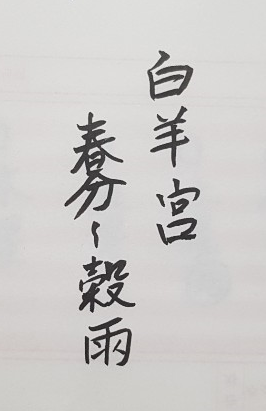 白羊宮
春分~穀雨